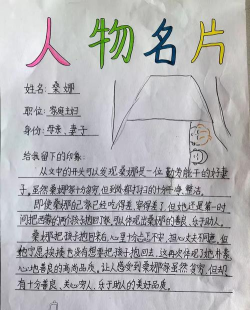 人物名片
姓名：桑娜
职位：家庭主妇
身份：母亲、妻子
给我留下的印象：
从文中的开头可以发现桑娜是一位勤劳能干的好妻
子。虽然桑娜家十分穷，但到处都打扫的十分干净、整洁。
即使桑娜自己家已经吃得差、穿得差了，但她还是第一时
间把西蒙的两个孩子抱回了家，可以体现出桑娜的善良、乐于助人。
桑娜把孩子抱回来后，心里十分忐忑不安，担心丈夫不同意，但
她宁愿挨揍也没有想要把孩子抱回去，这再次体现了她朴素
心地善良的高尚品质。让人感受到桑娜家虽然贫穷，但却
有十分善良、关心穷人、乐于助人的美好品质。